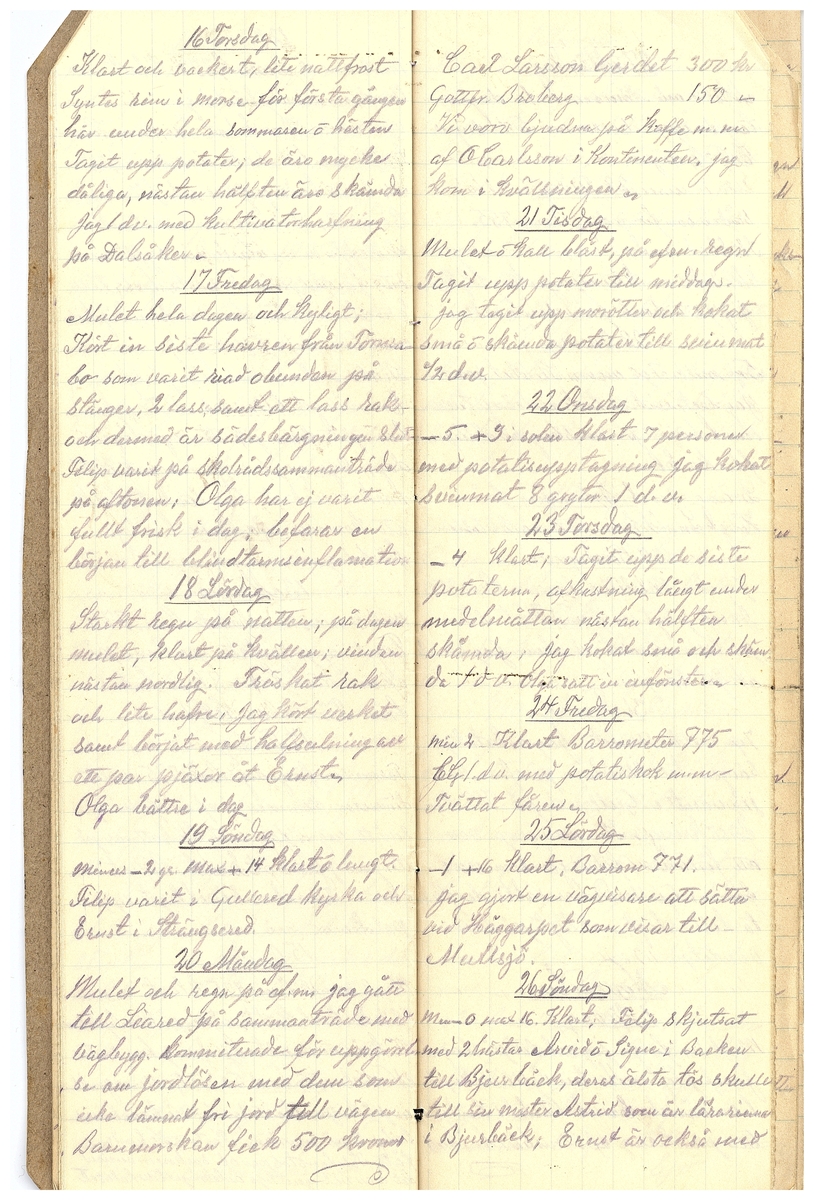 16 Torsdag
Klart och vackert, lite nattfrost
Syntes rim i morse för första gången
här under hela sommaren ö hösten
Tagit upp potater; de äro mycke
dåliga, nästan hälften äro skämda
jag 1 dv. med kultivatorharfning
på Dalsåker.
17 Fredag
Mulet hela dagen och kyligt;
Kört in siste havren från Tomta-
bo som varit riad obunden på
stänger, 2 lass, samt ett lass rak-
och dermed är sädesbärgningen slut
Filip varit på skolrådssammanträde
på aftonen; Olga har ej varit
fullt frisk i dag; befarar en
början till blindtarmsinflamation
18 Lördag
Starkt regn på natten; på dagen
mulet, klart på kvällen; vinden
nästan nordlig. Tröskat rak
och lite hafre, jag kört verket
samt börjat med halfsulning av
ett par pjäxor åt Ernst.
Olga bättre i dag
19 Söndag
minus - 2 gr. max + 14 klart ö lungt.
Filip varit i Gullered kyrka och
Ernst i Strängsered.
20 Måndag
Mulet och regn på ef.m. jag gått
till Liared på sammanträde med
vägbygg. kommiterade för uppgörel-
se om jordlösen med dem som
icke lämnat fri jord till vägen
Barnmorskan fick 500 kronor
Carl Larsson Gerdet 300 kr
Gottfr. Broberg 150 "
Vi voro bjudna på kaffe m.m.
af O Carlsson i Kontinenten, jag
kom i kvällningen
21 Tisdag
Mulet ö kall blåst, på efm. regn
Tagit upp potater till middag.
jag tagit upp morötter och kokat
små ö skämda potater till svinmat
1/2 d.v.
22 Onsdag
- 5. + 9 i solen klart 7 personer
med potatisupptagning jag kokat
svinmat 8 grytor 1 d.v.
23 Torsdag
- 4 klart; Tagit upp de siste
potaterna, afkastning långt under
medelmåttan nästan hälften
skämda; jag kokat små och skäm
da 1 d v. Olga satt in infönster
24 Fredag
min 2 - Klart Barrometer 775
1 d.v. med potatiskok m.m -
Tvättat fåren
25 Lördag
- 1 + 16 klart, Barrom 771.
jag gjort en vägvisare att sätta
vid Häggarpet som visar till -
Mullsjö.
26 Söndag
Min - 0 max 16. Klart; Filip skjutsat
med 2 hästar Arvid ö Signe i Backen
till Bjurbäck, deras älsta tös skulle
till sin moster Astrid som är lärarinna
i Bjurbäck; Ernst är också med